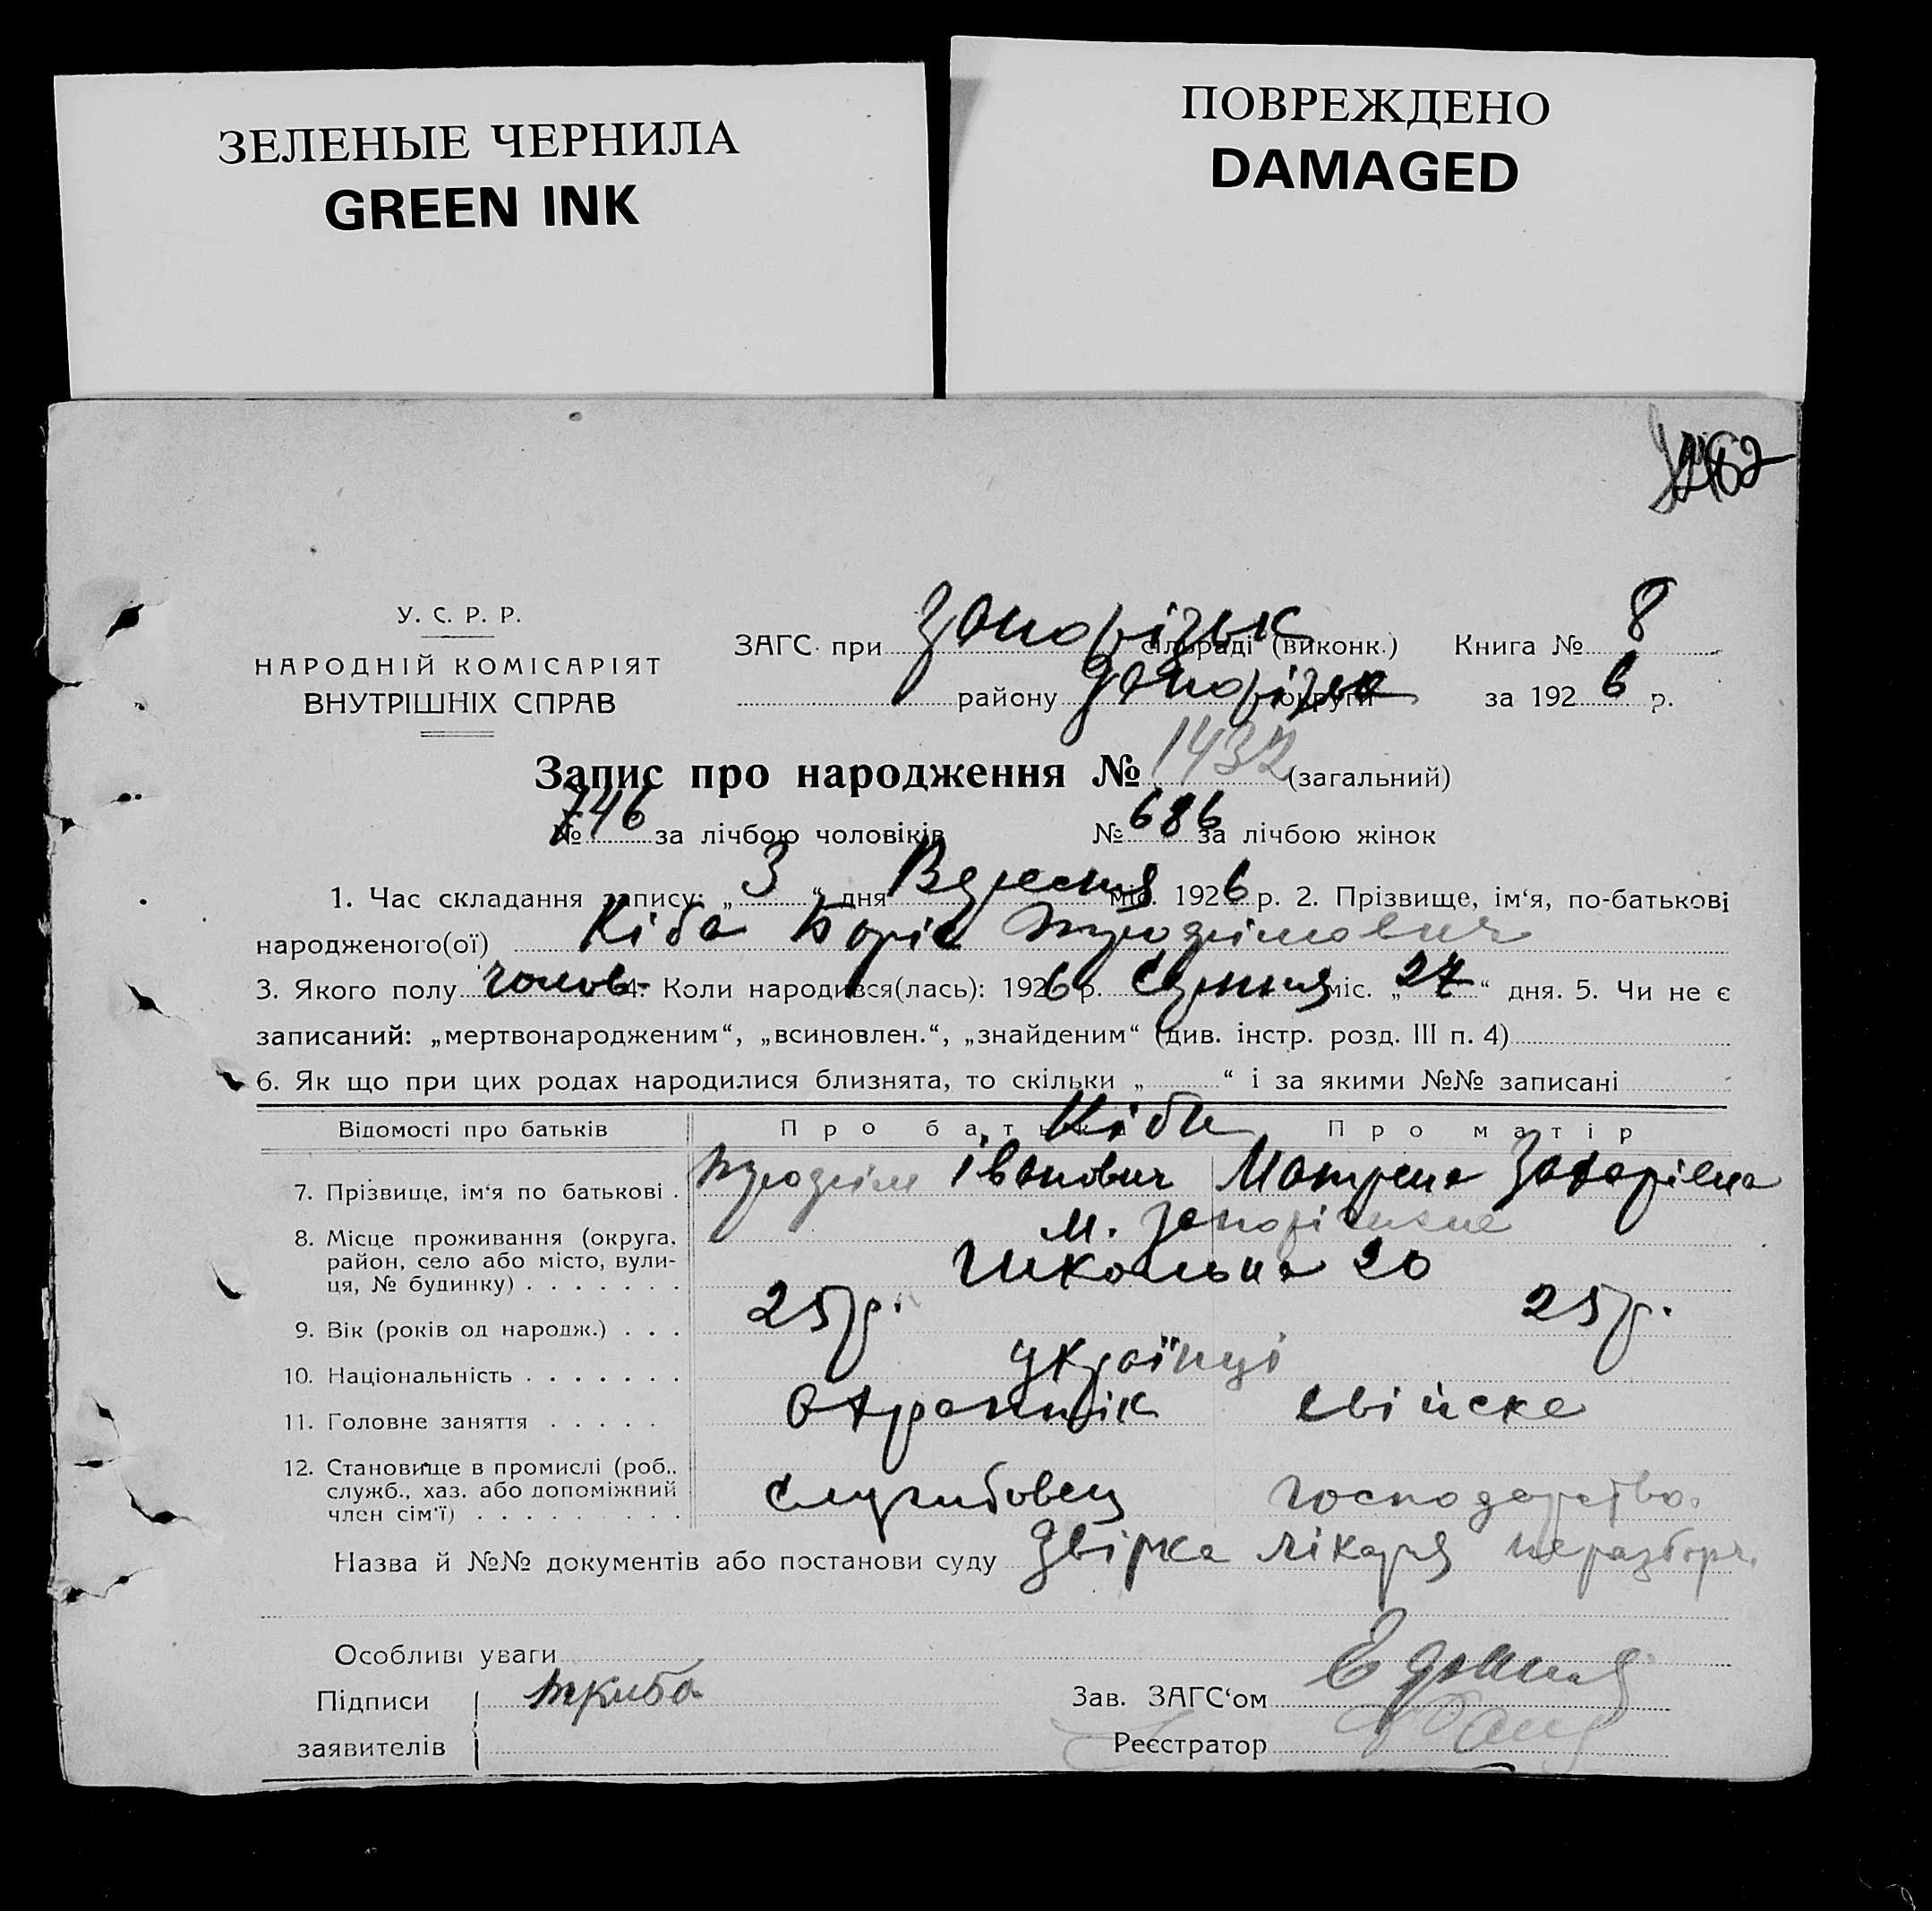 ЗЕЛЕНЫЕ ЧЕРНИЛА
GREEN INK
ПОВРЕЖДЕНО
DAMAGED
У. С. Р. Р.
НАРОДНІЙ КОМІСАРІЯТ
ВНУТРІШНІХ СПРАВ
ЗАГС при Запорізьк сільраді (виконк.) Книга № 8
району Запорізьк округи за 1926 р.
Запис про народження № 1432 (загальний)
№ 746 за лічбою чоловіків № 686 за лічбою жінок
1. Час складання запису: „3“ дня Вересня міс. 1926 р. 2. Прізвище, ім‘я, по-батькові
народженого(ої) Кіба Боріс
3. Якого полу чолов- 4. Коли народився(лась): 1926 р. Серпня міс. „27“ дня. 5. Чи не є
записаний: „мертвонародженим“, „всиновлен.“, „знайденим“ (див. інстр. розд. III п. 4)
6. Як що при цих родах народилися близнята, то скільки „ “ і за якими №№ записані
Відомості про батьків Про батька Про матір
Кіби
7. Прізвище, ім‘я по батькові . Іванович Мотрена Захарівна
8. Місце проживання (округа, м. Запоріжжє
район, село або місто, вули-
ця, № будинку) . . . . . . . Школьна 20
9. Вік (років од народж.) . . . 25 р. 25 р.
10. Національність . . . . . . . українці
11. Головне заняття . . . . . Охранник свійске
12. Становище в промислі (роб.,
служб., хаз. або допоміжний Службовец господарство.
член сім‘ї) . . . . . . . . .
Назва й №№ документів або постанови суду Двірка лікаря неразборч.
Особливі уваги
Підписи Зав. ЗАГС‘ом
заявителів Реєстратор